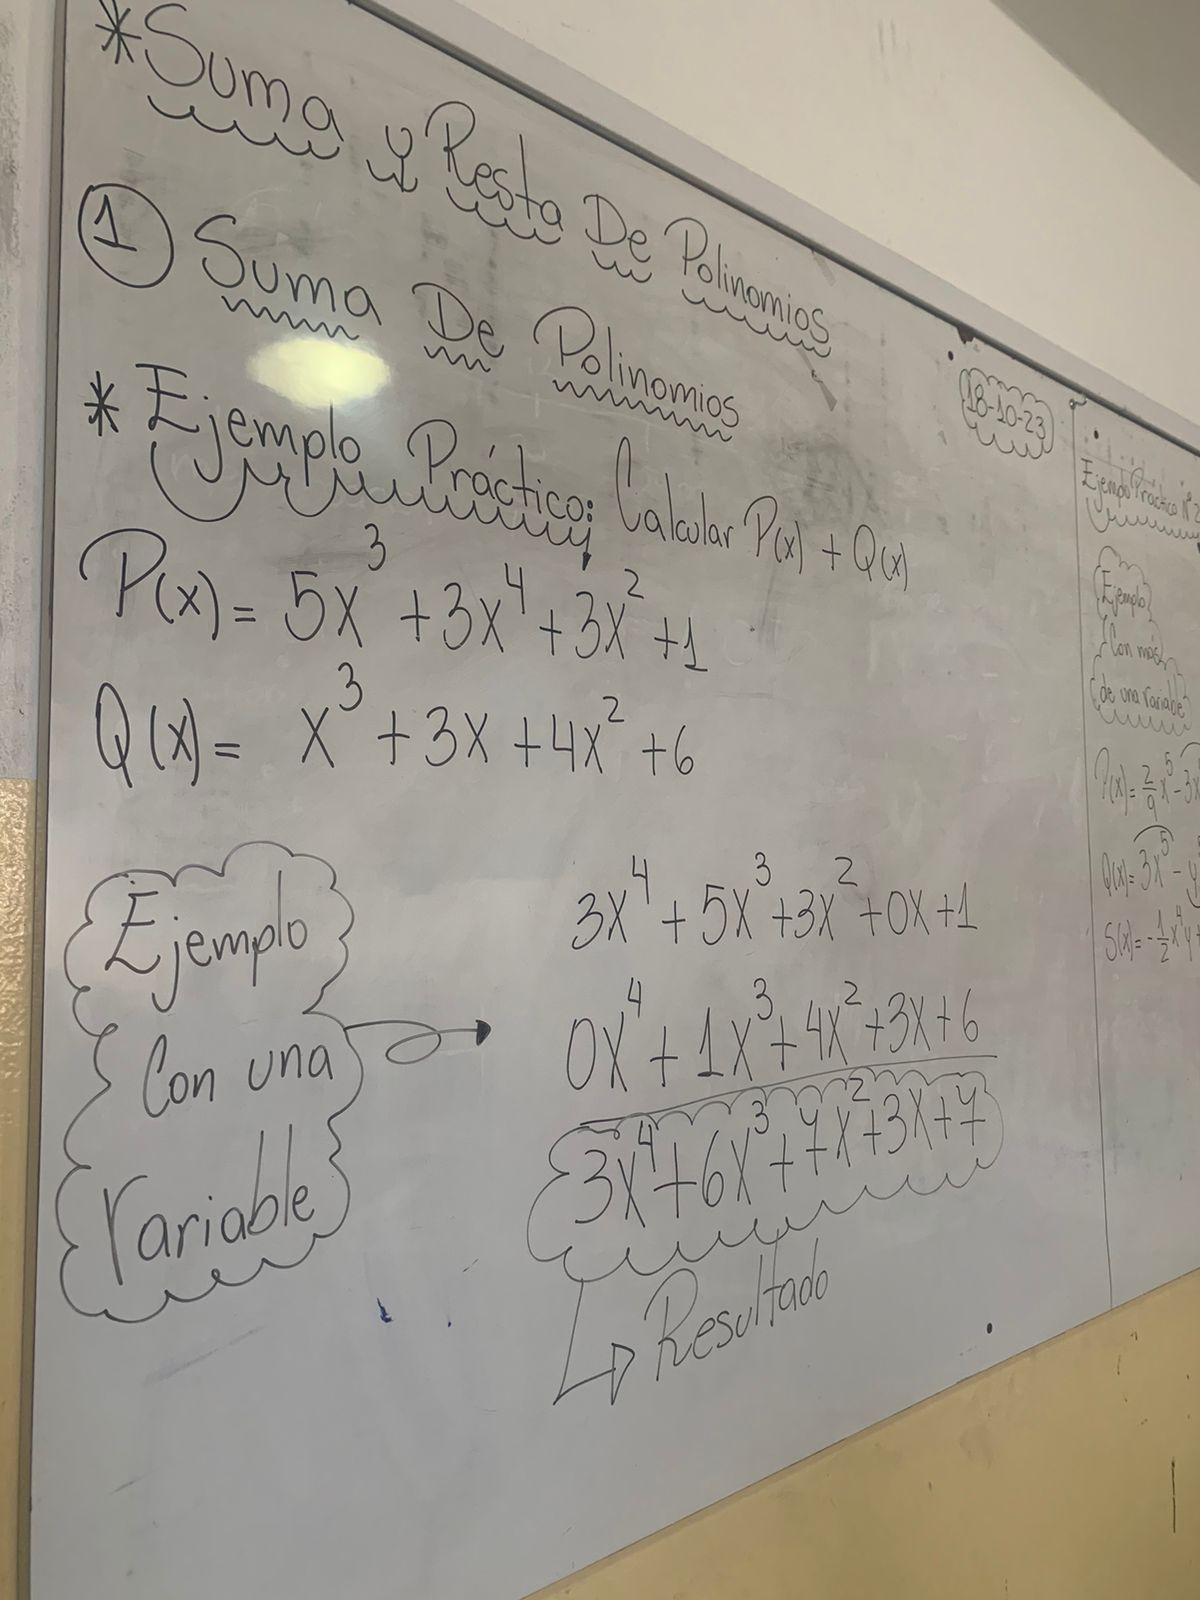 *Suma y Resta De Polinomios
1 Suma De Polinomios
18-10-23
* Ejemplo Práctico: Calcular P(x) + Q(x)
P(x) = 5x³ + 3x⁴ + 3x² + 1
Q(x) = x³ + 3x + 4x² + 6
Ejemplo
Con una
Variable
3x⁴ + 5x³ + 3x² + 0x + 1
0x⁴ + 1x³ + 4x² + 3x + 6
3x⁴ + 6x³ + 7x² + 3x + 7
Resultado
Ejemplo Práctico Nº2
Ejemplo
Con más
de una variable
P(x) = 2/9 x⁵ - 3x
Q(x) = 3x⁵ - y
S(x) = -1/2 x⁴y +